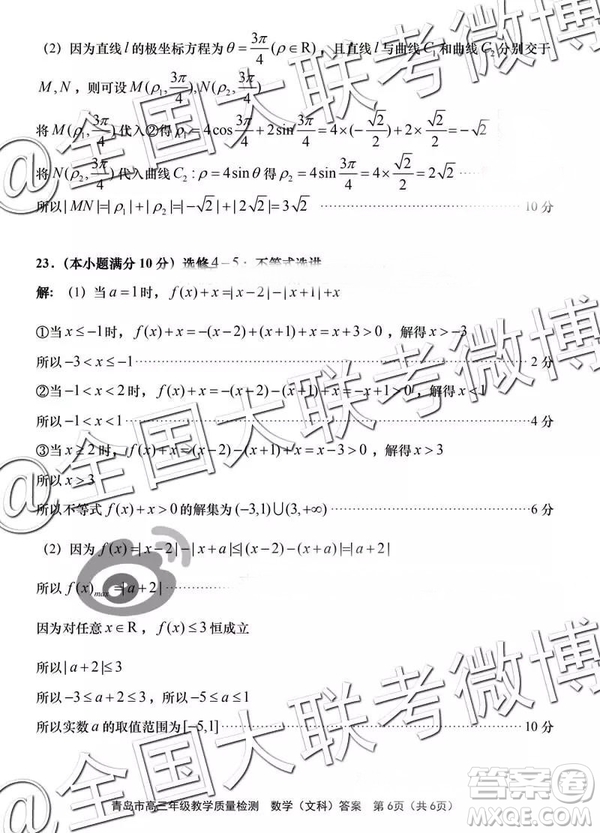 (2) 因为直线 l 的极坐标方程为 θ = 3π/4 (ρ∈R)，且直线 l 与曲线 C₁ 和曲线 C₂ 分别交于
M, N，则可设 M(ρ₁, 3π/4), N(ρ₂, 3π/4)
将 M(ρ₁, 3π/4) 代入②得 ρ₁ = 4cos 3π/4 + 2sin 3π/4 = 4×(−√2/2) + 2×√2/2 = −√2
将 N(ρ₂, 3π/4) 代入曲线 C₂ : ρ = 4sinθ 得 ρ₂ = 4sin 3π/4 = 4×√2/2 = 2√2
所以 |MN| = |ρ₁| + |ρ₂| = |−√2| + |2√2| = 3√2 10 分
23．(本小题满分 10 分) 选修 4－5：不等式选讲
解: (1) 当 a = 1 时，f(x) + x = |x−2| − |x+1| + x
①当 x ≤ −1 时，f(x) + x = −(x−2) + (x+1) + x = x + 3 > 0，解得 x > −3
所以 −3 < x ≤ −1 2 分
②当 −1 < x < 2 时，f(x) + x = −(x−2) − (x+1) + x = −x + 1 > 0，解得 x < 1
所以 −1 < x < 1 4 分
③当 x ≥ 2 时，f(x) + x = (x−2) − (x+1) + x = x − 3 > 0，解得 x > 3
所以 x > 3
所以不等式 f(x) + x > 0 的解集为 (−3,1)∪(3,+∞) 6 分
(2) 因为 f(x) = |x−2| − |x+a| ≤ |(x−2) − (x+a)| = |a+2|
所以 f(x)max = |a+2|
因为对任意 x∈R，f(x) ≤ 3 恒成立
所以 |a+2| ≤ 3
所以 −3 ≤ a+2 ≤ 3，所以 −5 ≤ a ≤ 1
所以实数 a 的取值范围为 [−5,1] 10 分
青岛市高三年级教学质量检测 数学（文科）答案 第 6页（共 6页）
@全国大联考微博
@全国大联考微博
答案圈
MXQE.COM